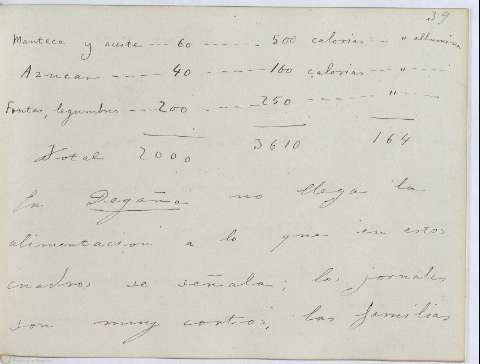 39
Manteca y aceite --- 60 ------ 500 calorias --- " albumina
Azucar ------ 40 --- ----- 160 calorias --- " -----
Frutas, legumbres --- 200 ---- 250 ------ " ----
Total 2000 3610 164
En Degaña no llega la
alimentacion a lo que en estos
cuadros se señala; los jornales
son muy cortos, las familias